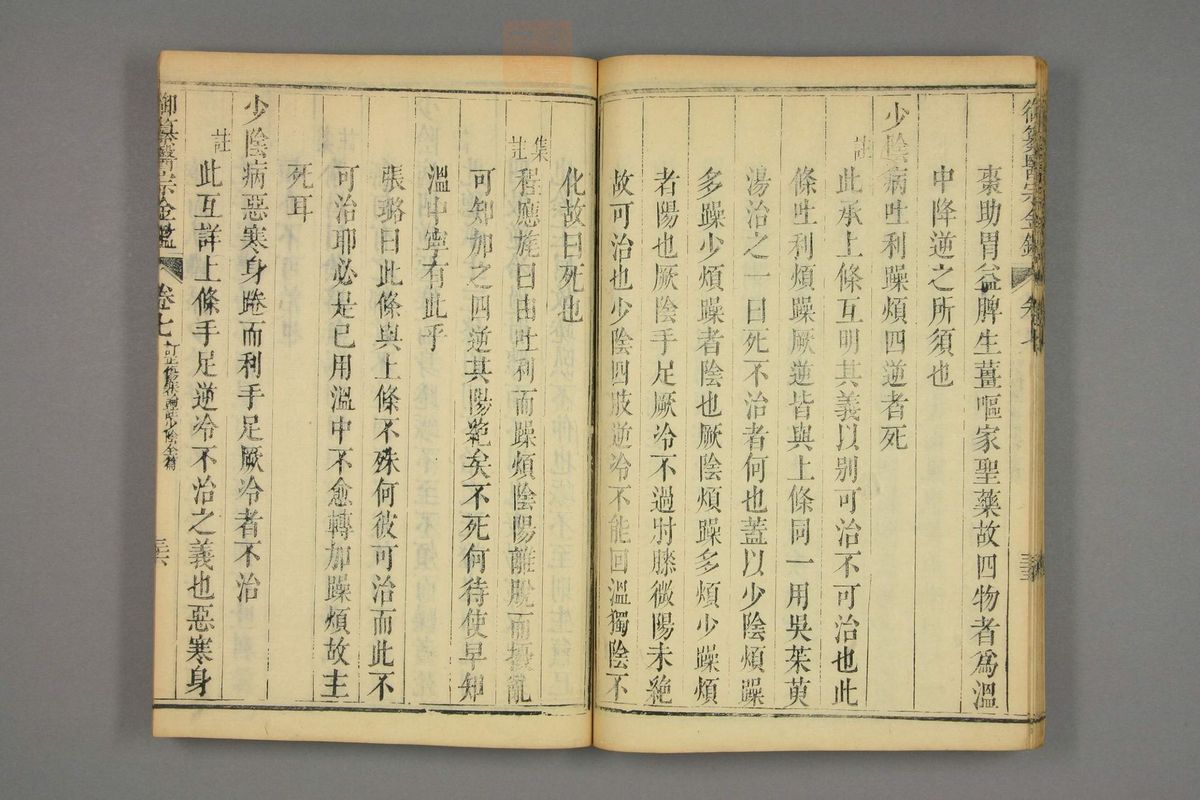 御纂醫宗金鑑 卷七
棗助胃益脾生薑嘔家聖藥故四物者爲溫
中降逆之所須也
少陰病吐利躁煩四逆者死
註
此承上條互明其義以别可治不可治也此
條吐利煩躁厥逆皆與上條同一用吳茱萸
湯治之一曰死不治者何也葢以少陰煩躁
多躁少煩躁者陰也厥陰煩躁多煩少躁煩
者陽也厥陰手足厥冷不過肘膝微陽未絶
故可治也少陰四肢逆冷不能回溫獨陰不
化故曰死也
集註
程應旄曰由吐利而躁煩陰陽離脫而擾亂
可知加之四逆其陽絶矣不死何待使早知
溫中寧有此乎
張璐曰此條與上條不殊何彼可治而此不
可治耶必是已用溫中不愈轉加躁煩故主
死耳
少陰病惡寒身踡而利手足厥冷者不治
註
此互詳上條手足逆冷不治之義也惡寒身
御纂醫宗金鑑 卷七 少陰全篇